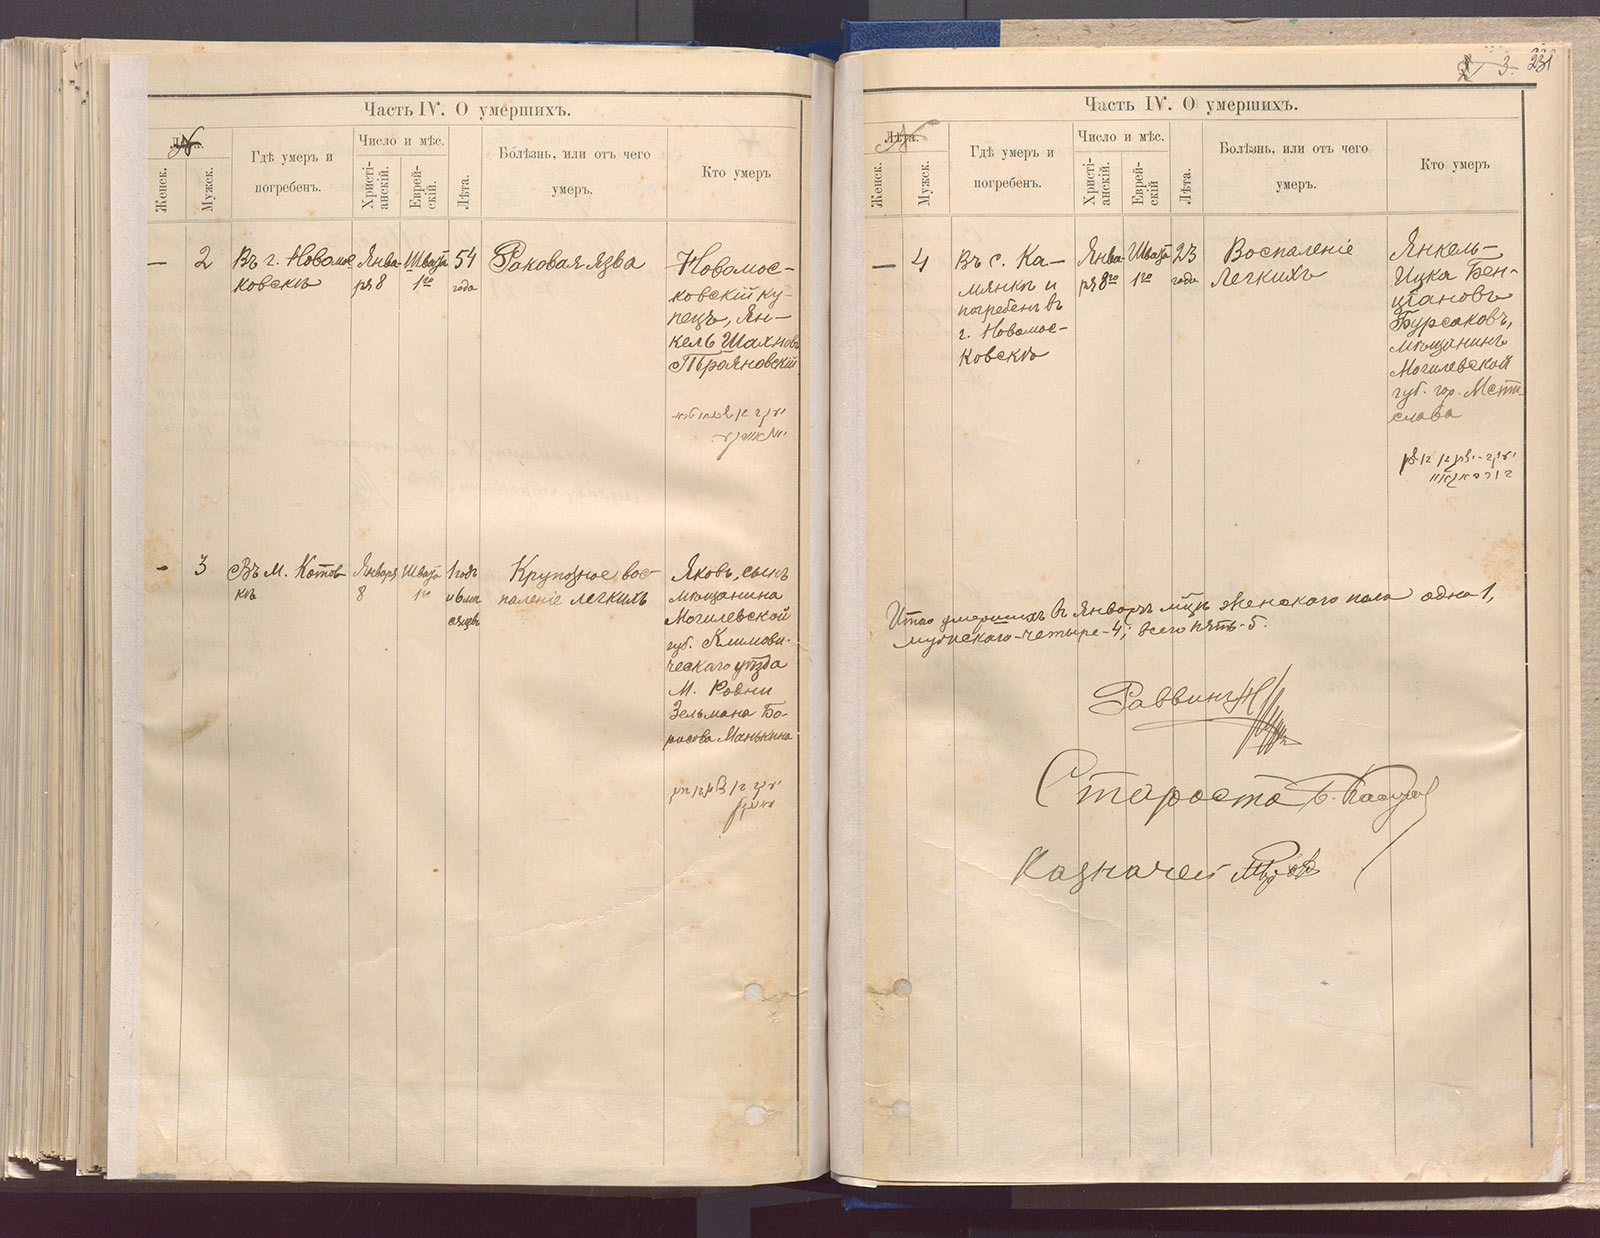 Часть IV. О умершихъ.
№
Женск.
Мужск.
Гдѣ умеръ и
погребенъ.
Число и мѣс.
Христі-
анскій.
Еврей-
скій.
Лѣта.
Болѣзнь, или отъ чего
умеръ.
Кто умеръ
—
2
Въ г. Новомос
ковскѣ
Янва-
ря 8
Шватъ
1го
54
года
Раковая язва
Новомос-
ковскій ку-
пецъ, Ян-
кель Шахновъ
-
3
Въ м. Котов
кѣ
Января
8
Шватъ
1го
1 годъ
и 6 мѣ
сяцевъ
Крупозное вос-
паленіе легкихъ
Яковъ, сынъ
мѣщанина
Могилевской
губ. Климови-
ческаго уѣзда
м.
Зельмана Бо-
рисова Манькина
3. 231
Часть IV. О умершихъ.
Лѣта.
Женск.
Мужск.
Гдѣ умеръ и
погребенъ.
Число и мѣс.
Христі-
анскій.
Еврей-
скій
Лѣта.
Болѣзнь, или отъ чего
умеръ.
Кто умеръ
—
4
Въ с. Ка-
мянкѣ и
погребенъ въ
г. Новомос-
ковскѣ
Янва-
ря 8го
Шватъ
1го
23
года
Воспаленіе
легкихъ
Янкель-
Ицка Бен-
ціановъ
Бурсаковъ,
мѣщанинъ
Могилевской
губ. гор. Мсти
слава
Итого умершихъ въ Январѣ м-цѣ женскаго пола одна 1,
мужескаго-четыре-4; всего пять-5.
Раввинъ
Староста
Казначей